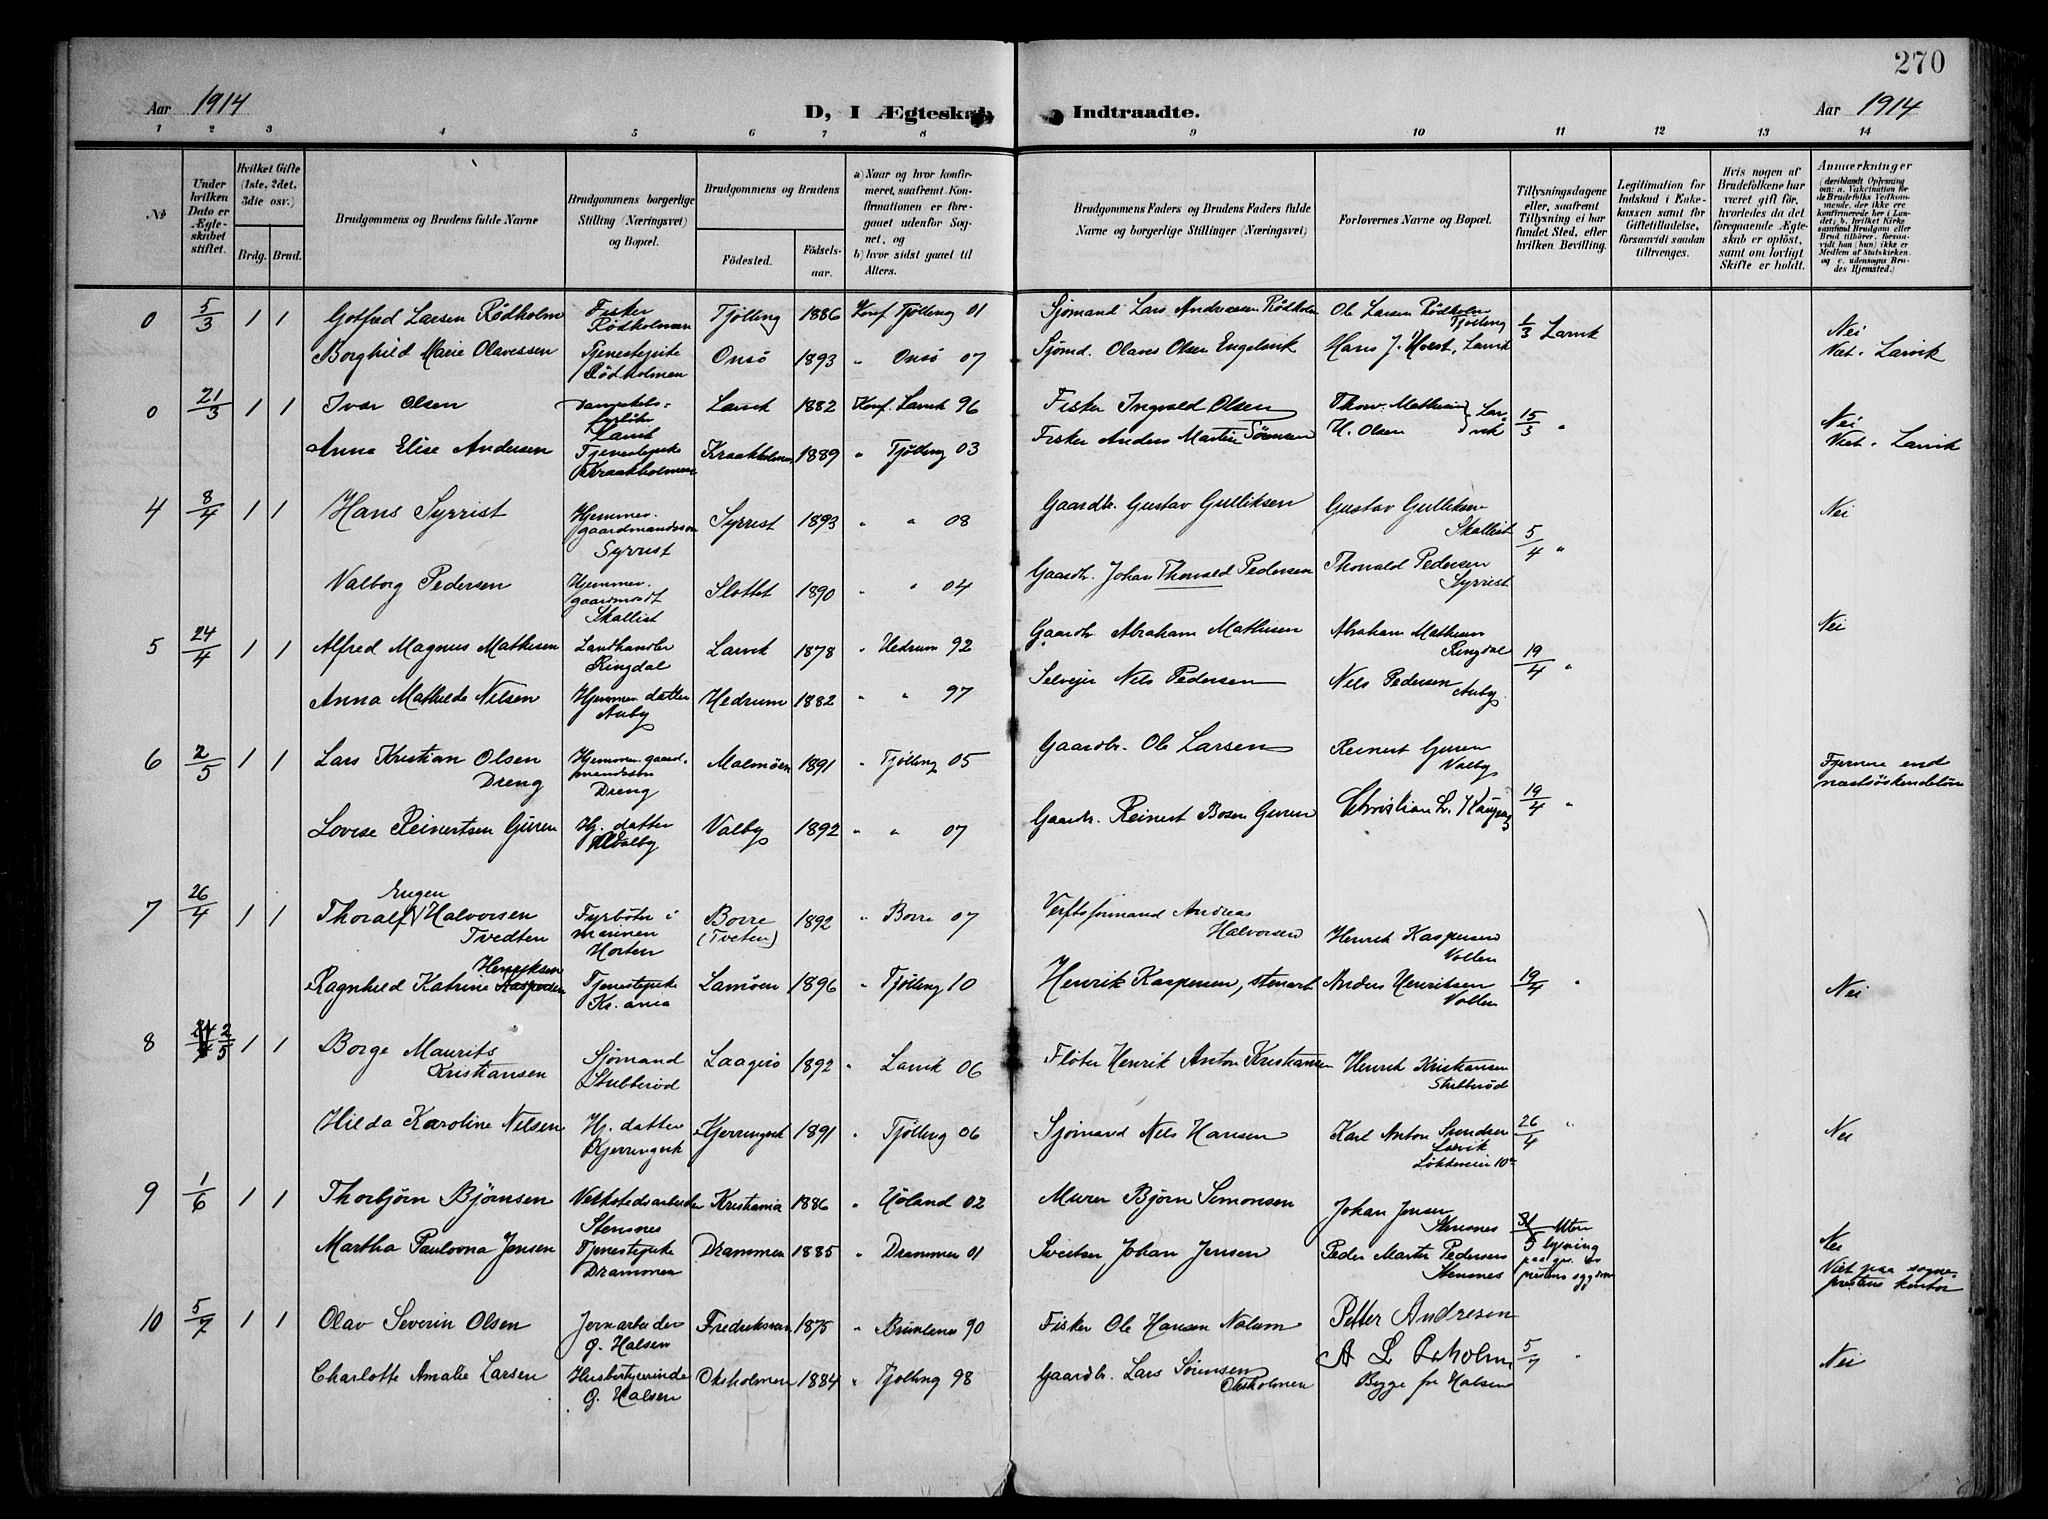 270
Aar 1914
D, I Ægteskab Indtraadte.
Aar 1914
1 2 3 4 5 6 7 8 9 10 11 12 13 14
№
Under hvilken Dato er Ægteskabet stiftet.
Hvilket Gifte (1ste, 2det, 3die osv.)
Brdg. Brud.
Brudgommens og Brudens fulde Navne
Brudgommens borgerlige Stilling (Næringsvei) og Bopæl.
Brudgommens og Brudens
Fødested.
Fødselsaar.
a) Naar og hvor konfirmeret, saafremt Konfirmationen er foregaaet udenfor Sognet, og
b) hvor sidst gaaet til Alters.
Brudgommens Faders og Brudens Faders fulde Navne og borgerlige Stillinger (Næringsvei)
Forlovernes Navne og Bopæl.
Tillysningsdagene eller, saafremt Tillysning ei har fundet Sted, efter hvilken Bevilling.
Legitimation for Indskud i Enkekassen samt for Giftetilladelse, forsaavidt saadan tiltrænges.
Hvis nogen af Brudefolkene har været gift før, hvorledes da det foregaaende Ægteskab er opløst, samt om lovligt Skifte er holdt.
Anmærkninger
(deriblandt Oplysning om: a. Vakcination for de Brudefolks Vedkommende, der ikke ere konfirmerede her i Landet; b. hvilket Kirkesamfund Brudgom eller Brud tilhører, forsaavidt han (hun) ikke er Medlem af Statskirken, og c. udensogns Brudes Hjemsted.)
0 5/3 1 1 Gotfred Larsen Rödholm Fisker Rödholmen Tjölling 1886 Konf. Tjölling 01 Sjömand Lars Andreasen Rödholm Ole Larsen Rödholm Tjölling 1/3 Larvik Nei
Borghild Marie Olavessen Tjenestepike Rödholmen Onsö 1893 " Onsö 07 Sjömd. Olaves Olsen Engelsvik Hans J. Hvest, Larvik Viet. Larvik
0 21/3 1 1 Ivar Olsen Larvik Larvik 1882 Konf. Larvik 96 Fisker Ingvald Olsen Thorv. Mathisen Larvik 15/3 " Nei
Anna Elise Andersen Tjenestepike Kraakholmen Kraakholmen 1889 " Tjölling 03 Fisker Anders Martin Sörensen H. Olsen Viet. Larvik
4 8/4 1 1 Hans Syrrist Hjemmev. gaardmandssön Syrrist Syrrist 1893 " " 08 Gaardbr. Gustav Gulliksen Gustav Gulliksen Skallist 5/4 " Nei
Valborg Pedersen Hjemmev. gaardm.dt. Skallist Slottet 1890 " " 04 Gaardbr. Johan Thorvald Pedersen Thorvald Pedersen Syrrist
5 24/4 1 1 Alfred Magnus Mathisen Landhandler Ringdal Larvik 1878 " Hedrum 92 Gaardbr. Abraham Mathisen Abraham Mathisen Ringdal 19/4 " Nei
Anna Mathilde Nilsen Hjemmev. datter Auby Hedrum 1882 " " 97 Selveier Nils Pedersen Nils Pedersen Auby
6 2/5 1 1 Lars Kristian Olsen Dreng Hjemmev. gaardmandssön Dreng Malmöen 1891 " Tjölling 05 Gaardbr. Ole Larsen Reinert Guren Valby 19/4 " Fjernere end næstsöskendebörn
Lovise Reinertsen Guren Hj. datter Valby Valby 1892 " " 07 Gaardbr. Reinert Guren Christian L. Kaupang
7 26/4 1 1 Thoralf Eugen Halvorsen Tvedten Fyrböter i marinen Horten Borre (Tveten) 1892 " Borre 07 Verftsformand Andreas Halvorsen Henrik Kaspersen Vollen
Ragnhild Katrine Henriksen Tjenestepike Kr.ania Lamöen 1896 " Tjölling 10 Henrik Kaspersen, stenarb. Anders Henriksen Vollen 19/4 " Nei
8 2/5 1 1 Borge Maurits Kristiansen Sjömand Stubberöd Laagerö 1892 " Larvik 06 Flöter Henrik Anton Kristiansen Henrik Kristiansen Stubberöd
Hilda Karoline Nilsen Hj. datter Kjerringvik Kjerringvik 1891 " Tjölling 06 Sjömand Nils Hansen Karl Anton Svendsen Larvik 26/4 " Nei
9 1/6 1 1 Thorbjörn Björnsen Verkstedsarbeider Stensnes Kristiania 1886 " Höland 02 Murer Björn Simonsen Johan Jensen Stensnes 31/5 Uten lysning
Martha Paulovna Jensen Tjenestepike Drammen Drammen 1885 " Drammen 01 Johan Jensen Peder Martin Pedersen Stensnes Nei Viet paa sogneprestens kontor
10 5/7 1 1 Olav Severin Olsen Jernarbeider G. Halsen Fredriksværn 1875 " Brunlanes 90 Fisker Ole Hansen Nalum Petter Andresen
Charlotte Amalie Larsen Husbestyrerinde G. Halsen Oksholmen 1884 " Tjölling 98 Gaardbr. Lars Sörensen Oksholmen A L Oxholm 5/7 " Nei